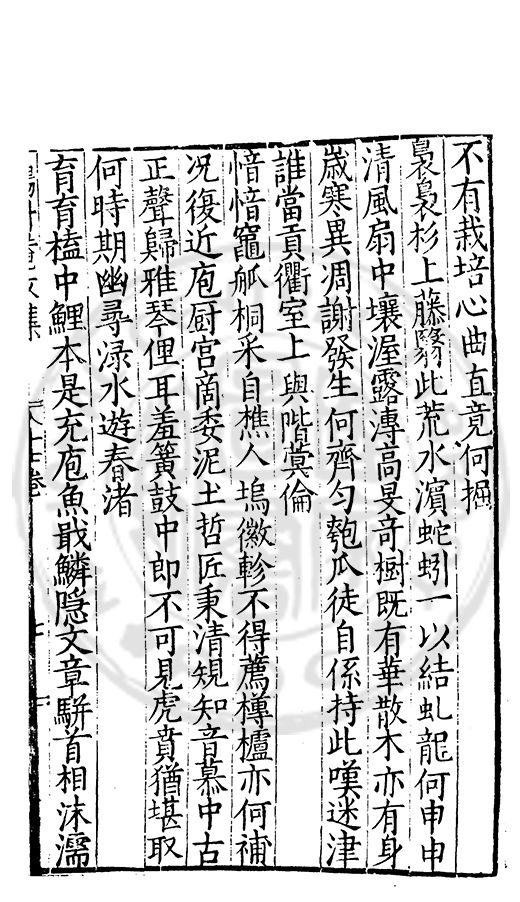 不有栽培心曲直竟何掘
裊裊杉上藤翳此荒水濱蛇蚓一以結虬龍何申申
清風扇中壤渥露漙高旻奇樹既有華散木亦有身
歲寒異凋謝發生何齊勻匏瓜徒自係持此嘆迷津
誰當貢衢室上與階蓂倫
愔愔竈觚桐采自樵人塢徽軫不得薦槫櫨亦何補
况復近庖厨宫商委泥土哲匠秉清規知音慕中古
正聲歸雅琴俚耳羞簧鼓中郎不可見虎賁猶堪取
何時期幽尋渌水遊春渚
育育榼中鯉本是充庖魚戢鱗隱文章駢首相沫濡